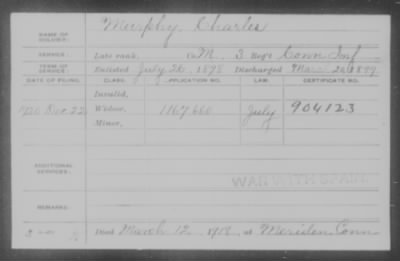 NAME OF SOLDIER: Murphy, Charles
SERVICE: Late rank, Co. M, 3 Reg't Conn Inf
TERM OF SERVICE: Enlisted July 26, 1898 Discharged Mar. 20, 1899
DATE OF FILING. CLASS. APPLICATION NO. LAW. CERTIFICATE NO.
Invalid,
1920 Dec. 22 Widow, 1167.660 July 904123
Minor,
ADDITIONAL SERVICES:
WAR WITH SPAIN
REMARKS:
Died March 12, 1918, at Meriden Conn